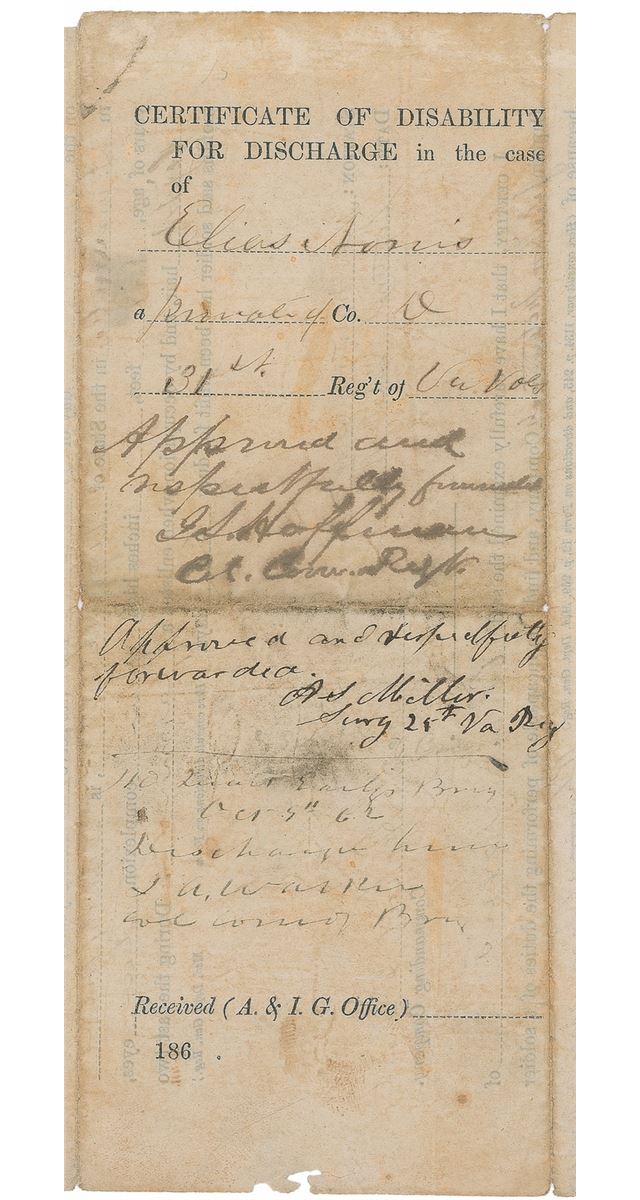 CERTIFICATE OF DISABILITY
FOR DISCHARGE in the case
of
Elias Norris
a private of Co. D
31st. Reg't of Va Vols
Approved and
respectfully forwarded
Hoffman
Col. Com. Regt.
Approved and respectfully
forwarded.
A S Miller.
Surg 25th Va Reg
Hd Early's Brig
Oct 62
Discharge him
J A, Walker
Col comdg Brig
Received (A. & I. G. Office)
186 .